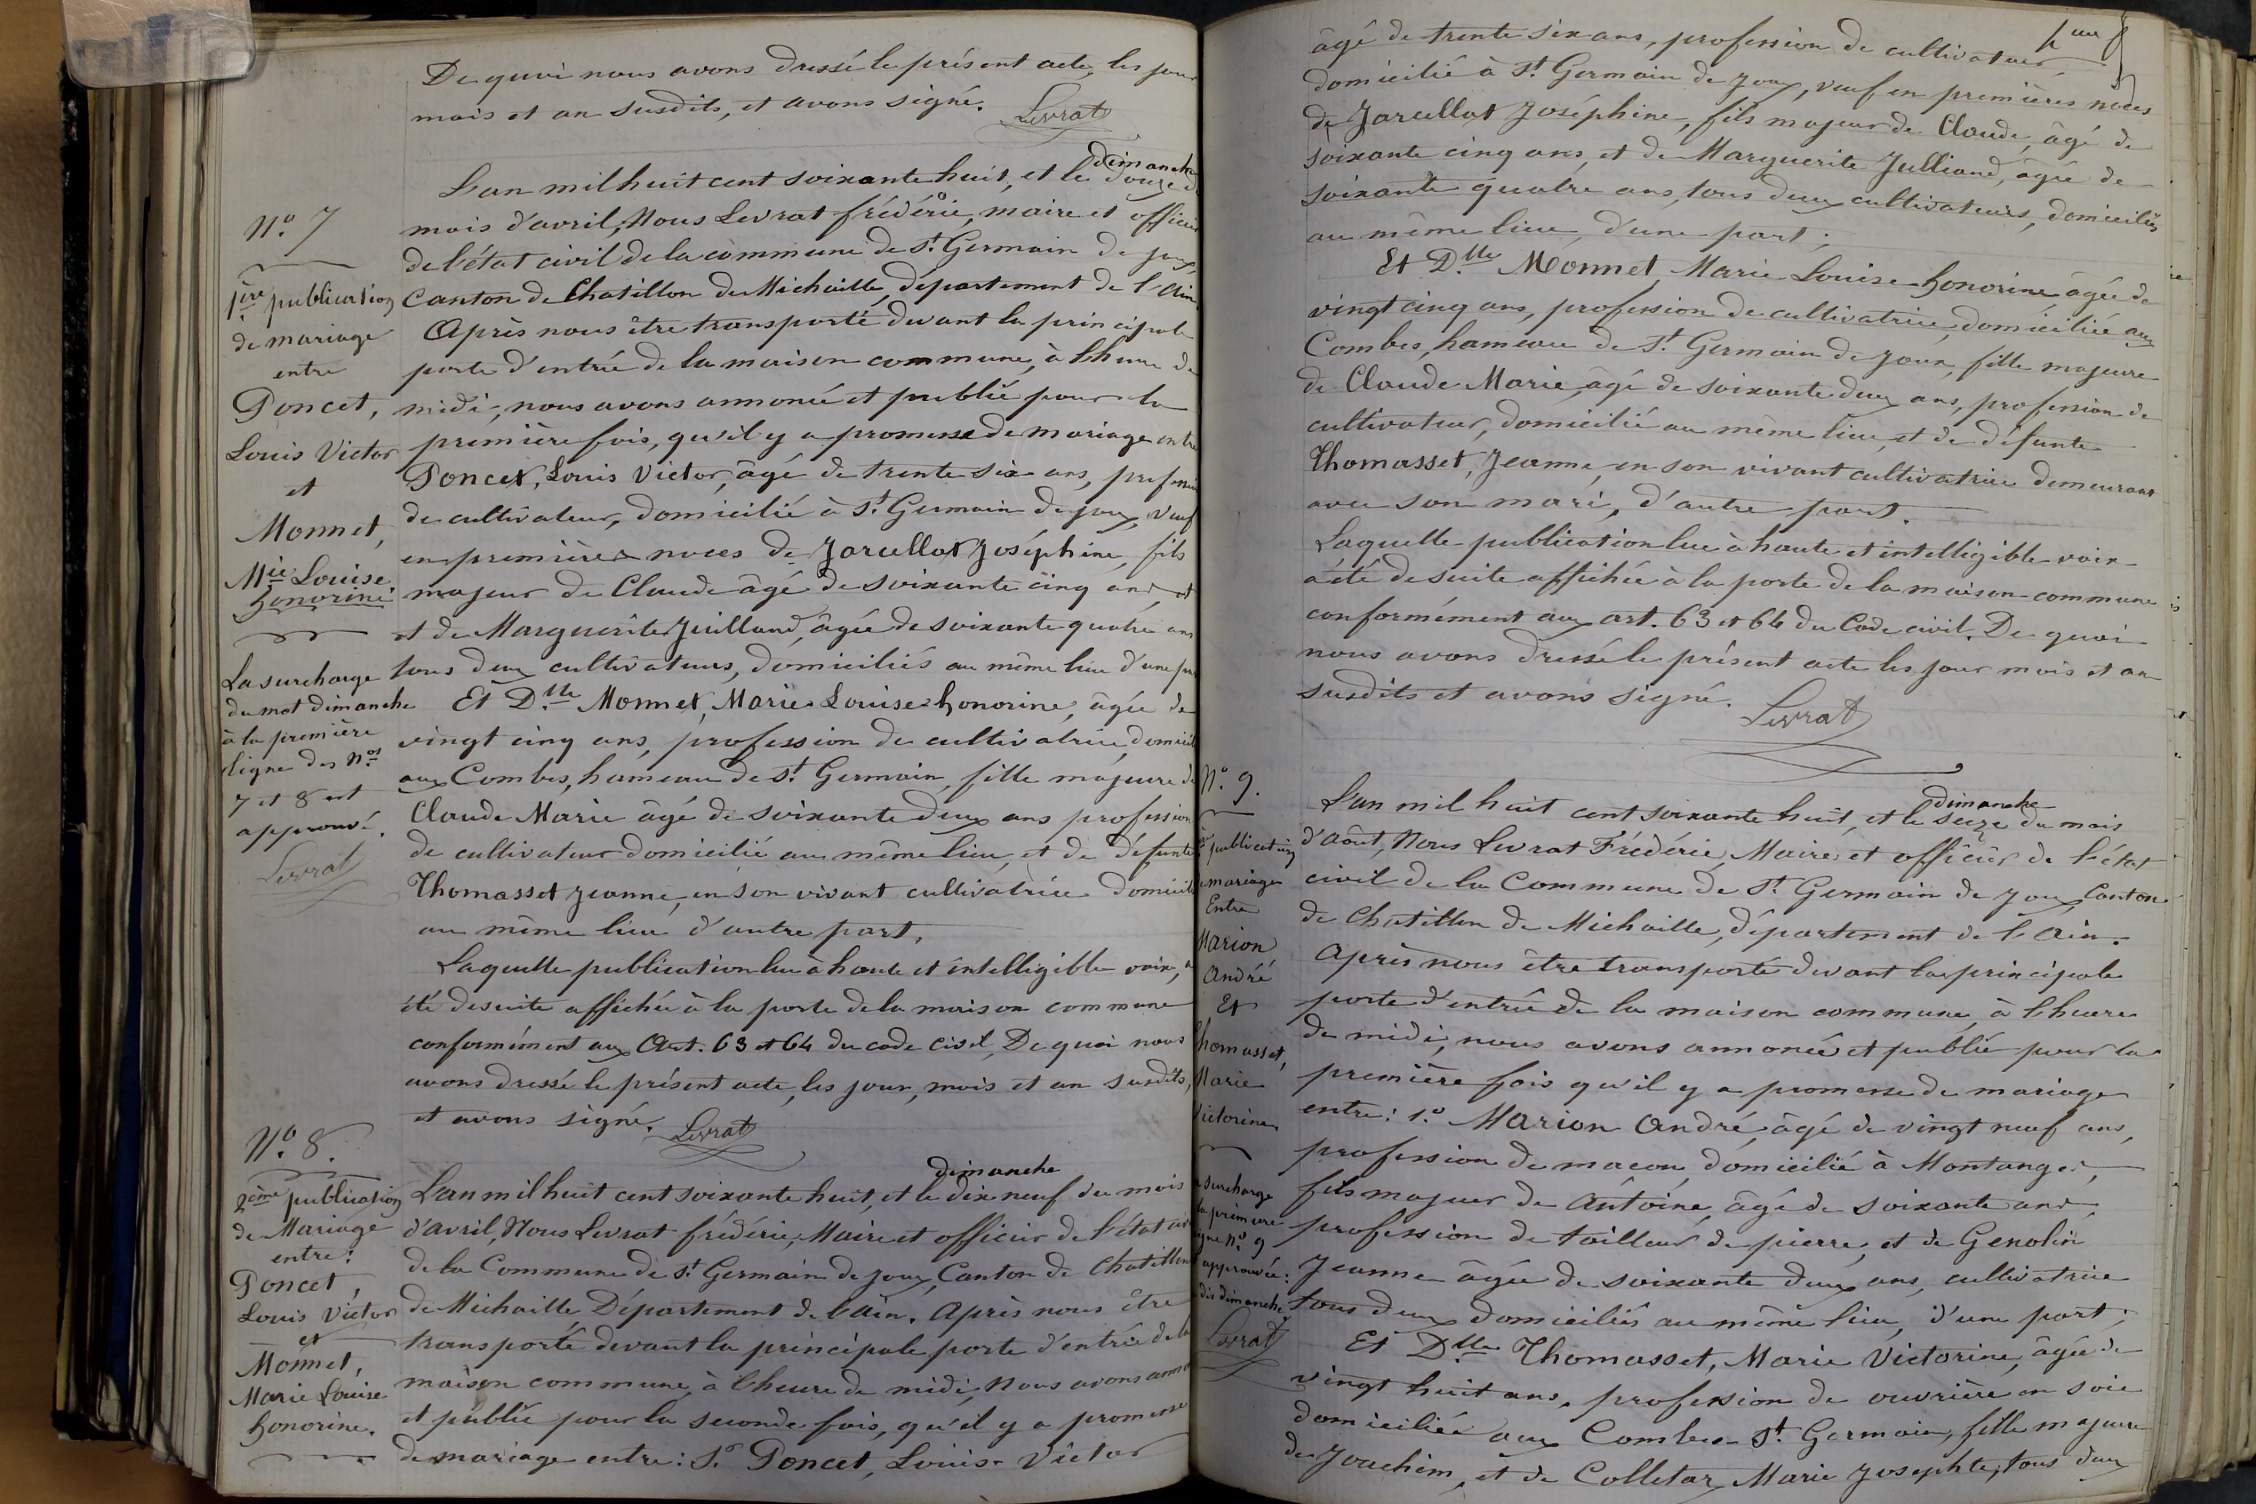 De quoi nous avons dressé le présent acte, les jour
mois et an susdits, et avons signé. Levrat
N.o 7
1ère publication
de mariage
entre
Poncet,
Louis Victor
et
Monnet,
Mie Louise
honorine
La surcharge
du mot dimanche
à la première
ligne des Nos
7 et 8 est
approuvé.
Levrat
dimanche
L'an mil huit cent soixante huit, et le douze d
mois d'avril, Nous Levrat frédéric, maire et officier
de l'état civil de la commune de St. Germain de joux,
Canton de Chatillon de Michaille, département de l'Ain
Après nous être transporté devant la principale
porte d'entrée de la maison commune, à l'heure de
midi, nous avons annoncé et publié pour la
première fois, qu'il y a promesse de mariage entre
Poncet, Louis Victor, âgé de trente six ans, profession
de cultivateur, domicilié à St. Germain de joux, veuf
en premières noces de Jarcellat Joséphine, fils
majeur de Claude âgé de soixante cinq ans, et
et de Marguerite Juilland, âgée de soixante quatre ans
tous deux cultivateurs, domiciliés au même lieu d'une par
Et D.lle Monnet, Marie Louise honorine, âgée de
vingt cinq ans, profession de cultivatrice, domicil
aux Combes, hameau de St. Germain, fille majeure de
Claude Marie âgé de soixante deux ans profession
de cultivateur domicilié au même lieu, et de défunte
Thomasset Jeanne, en son vivant cultivatrice domicil
au même lieu d'autre part.
Laquelle publication lue à haute et intelligible voix, a
été desuite affichée à la porte de la maison commune
conformément aux Art. 63 et 64 du code civil, De quoi nous
avons dressé le présent acte, les jour, mois et an susdits,
et avons signé. Levrat
N.o 8.
2ème publication
de Mariage
entre:
Poncet,
Louis Victor
et
Monnet,
Marie Louise
honorine.
dimanche
L'an mil huit cent soixante huit, et le dix neuf du mois
d'avril, Nous Levrat frédéric, Maire et officier de l'état civ
de la Commune de St. Germain de joux, Canton de Chatillon
de Michaille, Département de l'Ain. Après nous être
transporté devant la principale porte d'entrée de la
maison commune, à l'heure de midi, Nous avons annon
et publié pour la seconde fois, qu'il y a promesse
de mariage entre: 1.o Poncet, Louis Victor
âgé de trente six ans, profession de cultivateur
domicilié à St. Germain de Joux, veuf en premières noces
de Jarcellat Joséphine, fils majeur de Claude, âgé de
soixante cinq ans, et de Marguerite Julliand, âgée de
soixante quatre ans, tous deux cultivateurs, domiciliés
au même lieu, d'une part;
Et D.lle Monnet, Marie Louise honorine âgée de
vingt cinq ans, profession de cultivatrice, domiciliée aux
Combes, hameau de St. Germain de Joux, fille majeure
de Claude Marie, âgé de soixante deux ans, profession de
cultivateur, domicilié au même lieu, et de défunte
Thomasset, Jeanne, en son vivant cultivatrice demeurant
avec son mari, d'autre part.
Laquelle publication lue à haute et intelligible voix
a été desuite affichée à la porte de la maison commune
conformément aux art. 63 et 64 du Code civil. De quoi
nous avons dressé le présent acte les jour mois et an
susdits et avons signé. Levrat
N.o 9.
publication
mariage
Entre
Marion
André
Et
homasset,
Marie
Victorine
surcharge
la première
gne No 9
approuvée:
dis dimanche
Levrat
dimanche
L'an mil huit cent soixante huit, et le seize du mois
d'août, Nous Levrat Frédéric, Maire et officier de l'état
civil de la Commune de St. Germain de Joux, Canton
de Chatillon de Michaille, département de l'Ain.
Après nous être transporté devant la principale
porte d'entrée de la maison commune, à l'heure
de midi, nous avons annoncé et publié pour la
première fois qu'il y a promesse de mariage
entre: 1.o Marion André, âgé de vingt neuf ans,
profession de macon, domicilié à Montanges,
fils majeur de Antoine, âgé de soixante ans,
profession de tailleur de pierre, et de Genolin
Jeanne âgée de soixante deux ans, cultivatrice
tous deux domiciliés au même lieu, d'une part;
Et D.lle Thomasset, Marie Victorine, âgée de
vingt huit ans, profession de ouvrière en soie
domiciliée aux Combes St. Germain, fille majeure
de Joachim, et de Colletaz Marie Josephte, tous deux